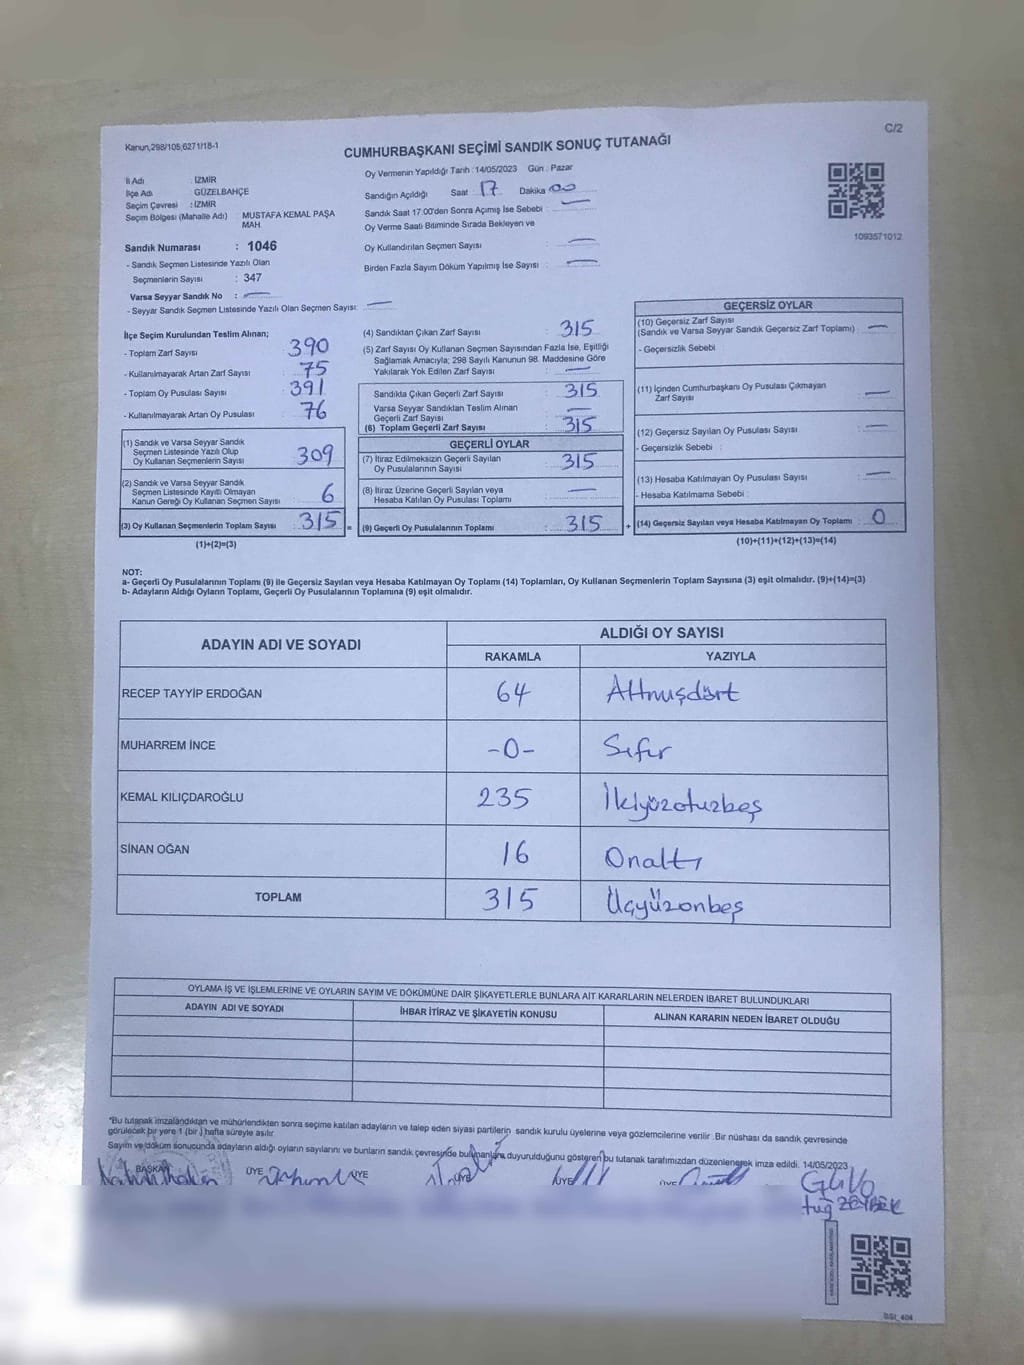 C/2
Kanun,298/105,6271/18-1
CUMHURBAŞKANI SEÇİMİ SANDIK SONUÇ TUTANAĞI
Oy Vermenin Yapıldığı Tarih : 14/05/2023 Gün : Pazar
İl Adı : İZMİR
İlçe Adı : GÜZELBAHÇE
Seçim Çevresi : İZMİR
Seçim Bölgesi (Mahalle Adı) MUSTAFA KEMAL PAŞA MAH.
Sandık Numarası : 1046
- Sandık Seçmen Listesinde Yazılı Olan
Seçmenlerin Sayısı : 347
Varsa Seyyar Sandık No : —
- Seyyar Sandık Seçmen Listesinde Yazılı Olan Seçmen Sayısı: —
Sandığın Açıldığı Saat : 17 Dakika : 00
Sandık Saat 17.00'den Sonra Açımış İse Sebebi : —
Oy Verme Saati Bitiminde Sırada Bekleyen ve
Oy Kullandırılan Seçmen Sayısı : —
Birden Fazla Sayım Döküm Yapılmış İse Sayısı : —
1093571012
İlçe Seçim Kurulundan Teslim Alınan;
- Toplam Zarf Sayısı 390
- Kullanılmayarak Artan Zarf Sayısı 75
- Toplam Oy Pusulası Sayısı 391
- Kullanılmayarak Artan Oy Pusulası 76
(1) Sandık ve Varsa Seyyar Sandık
Seçmen Listesinde Yazılı Olup
Oy Kullanan Seçmenlerin Sayısı 309
(2) Sandık ve Varsa Seyyar Sandık
Seçmen Listesinde Kayıtlı Olmayan
Kanun Gereği Oy Kullanan Seçmen Sayısı 6
(3) Oy Kullanan Seçmenlerin Toplam Sayısı 315 =
(1)+(2)=(3)
(4) Sandıktan Çıkan Zarf Sayısı : 315
(5) Zarf Sayısı Oy Kullanan Seçmen Sayısından Fazla İse, Eşitliği
Sağlamak Amacıyla; 298 Sayılı Kanunun 98. Maddesine Göre
Yakılarak Yok Edilen Zarf Sayısı : —
Sandıkta Çıkan Geçerli Zarf Sayısı : 315
Varsa Seyyar Sandıktan Teslim Alınan
Geçerli Zarf Sayısı : —
(6) Toplam Geçerli Zarf Sayısı : 315
GEÇERLİ OYLAR
(7) İtiraz Edilmeksizin Geçerli Sayılan
Oy Pusulalarının Sayısı : 315
(8) İtiraz Üzerine Geçerli Sayılan veya
Hesaba Katılan Oy Pusulası Toplamı : —
(9) Geçerli Oy Pusulalarının Toplamı : 315 +
GEÇERSİZ OYLAR
(10) Geçersiz Zarf Sayısı
(Sandık ve Varsa Seyyar Sandık Geçersiz Zarf Toplamı) : —
- Geçersizlik Sebebi :
(11) İçinden Cumhurbaşkanı Oy Pusulası Çıkmayan
Zarf Sayısı : —
(12) Geçersiz Sayılan Oy Pusulası Sayısı : —
- Geçersizlik Sebebi :
(13) Hesaba Katılmayan Oy Pusulası Sayısı : —
- Hesaba Katılmama Sebebi :
(14) Geçersiz Sayılan veya Hesaba Katılmayan Oy Toplamı : 0
(10)+(11)+(12)+(13)=(14)
NOT:
a- Geçerli Oy Pusulalarının Toplamı (9) ile Geçersiz Sayılan veya Hesaba Katılmayan Oy Toplamı (14) Toplamları, Oy Kullanan Seçmenlerin Toplam Sayısına (3) eşit olmalıdır. (9)+(14)=(3)
b- Adayların Aldığı Oyların Toplamı, Geçerli Oy Pusulalarının Toplamına (9) eşit olmalıdır.
ADAYIN ADI VE SOYADI ALDIĞI OY SAYISI
RAKAMLA YAZIYLA
RECEP TAYYİP ERDOĞAN 64 Altmışdört
MUHARREM İNCE -0- Sıfır
KEMAL KILIÇDAROĞLU 235 İkiyüzotuzbeş
SİNAN OĞAN 16 Onaltı
TOPLAM 315 Üçyüzonbeş
OYLAMA İŞ VE İŞLEMLERİNE VE OYLARIN SAYIM VE DÖKÜMÜNE DAİR ŞİKAYETLERLE BUNLARA AİT KARARLARIN NELERDEN İBARET BULUNDUKLARI
ADAYIN ADI VE SOYADI İHBAR İTİRAZ VE ŞİKAYETİN KONUSU ALINAN KARARIN NEDEN İBARET OLDUĞU
*Bu tutanak imzalandıktan ve mühürlendikten sonra seçime katılan adayların ve talep eden siyasi partilerin sandık kurulu üyelerine veya gözlemcilerine verilir. Bir nüshası da sandık çevresinde
görülecek bir yere 1 (bir) hafta süreyle asılır.
Sayım ve döküm sonucunda adayların aldığı oyların sayılarını ve bunların sandık çevresinde bulunanlara duyurulduğunu gösteren bu tutanak tarafımızdan düzenlenerek imza edildi. 14/05/2023
BAŞKAN ÜYE ÜYE ÜYE ÜYE ÜYE
tuğ ZEYBEK